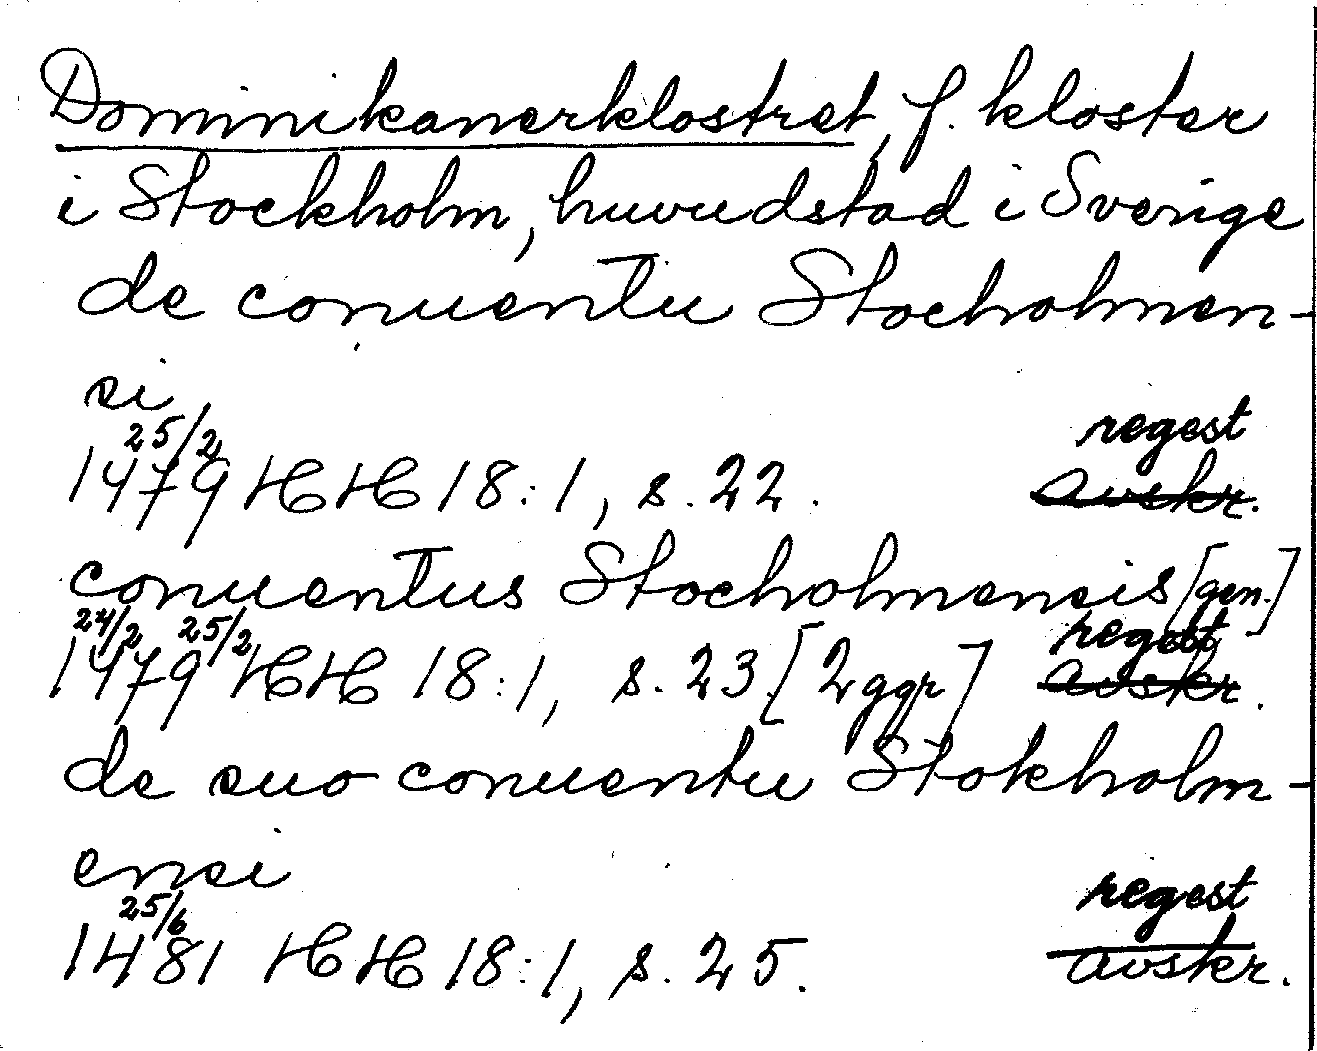 Dominikanerklostret, f. kloster
i Stockholm, huvudstad i Sverige
de conuentu Stocholmen-
si
25/2 regest
1479 HH 18:1, s. 22. avskr.
conuentus Stocholmensis [gen.]
24/2 25/2 regest
1479 HH 18:1, s. 23. [2 ggr] avskr.
de suo conuentu Stokholm-
ensi
25/6 regest
1481 HH 18:1, s. 25. avskr.